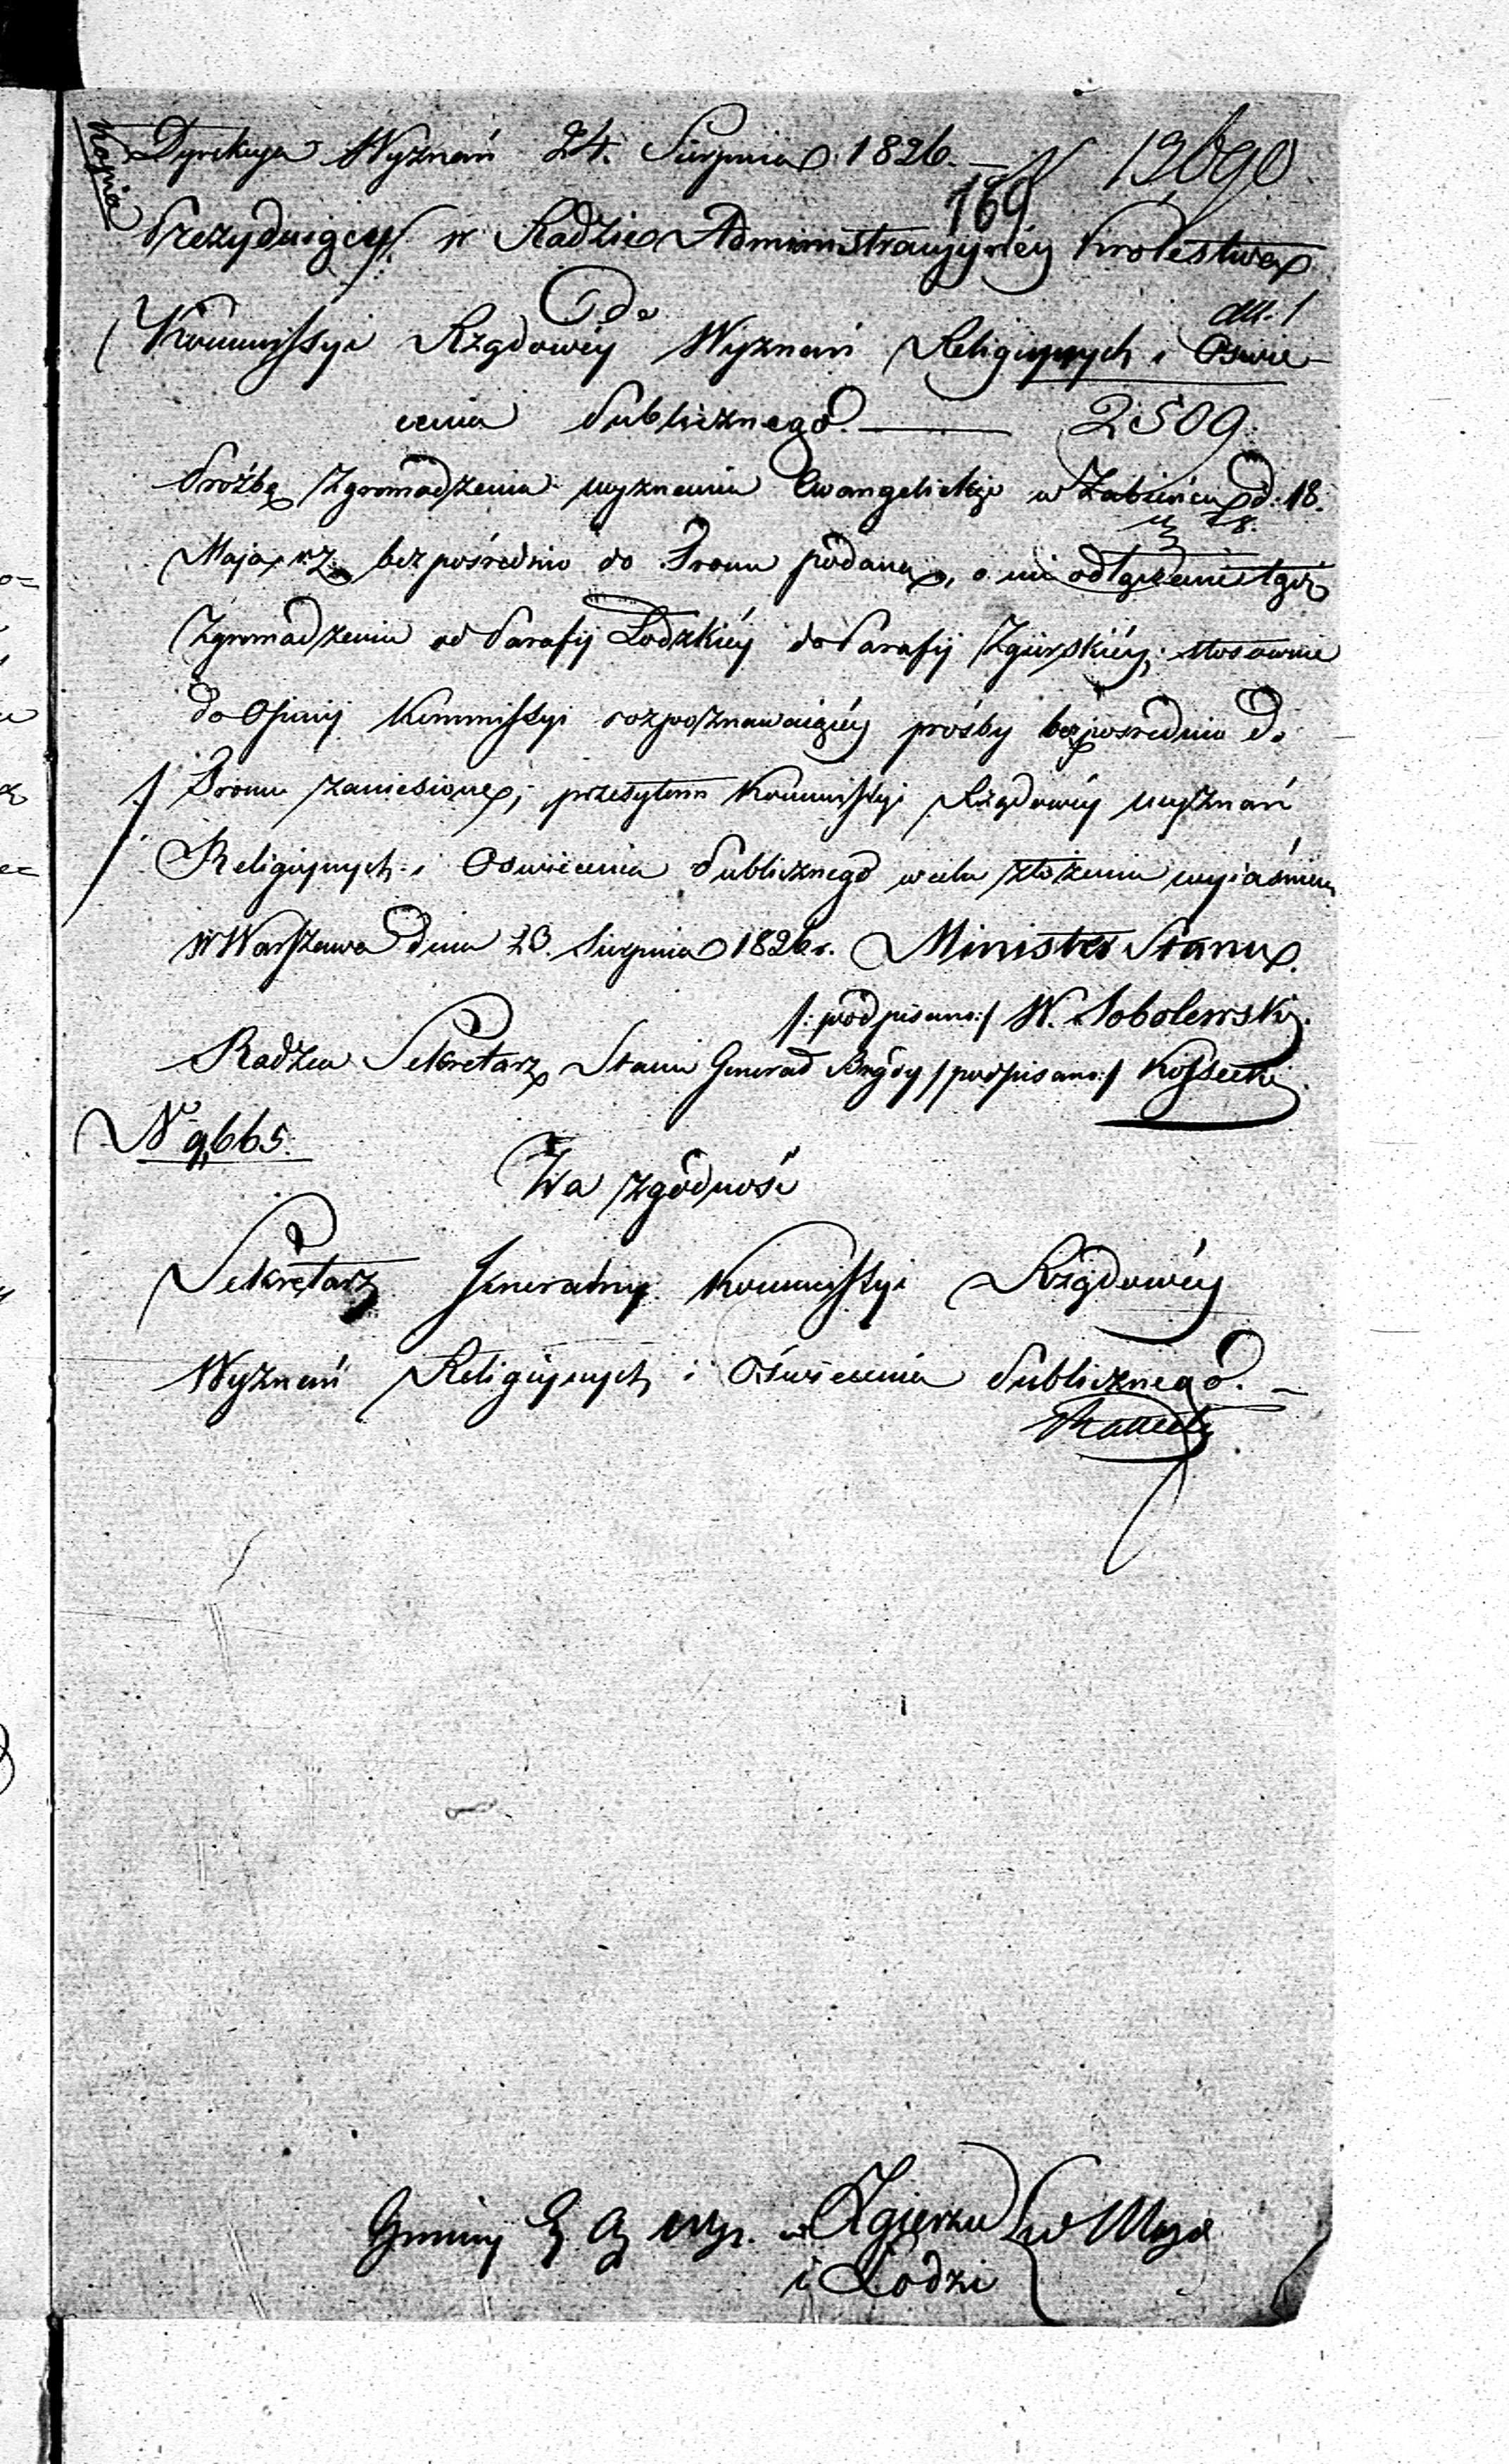 Kopia
Dyrekcya Wyznań 24. Sierpnia 1826. — N 13690.
169
Prezyduiący w Radzie Administracyynéy Królestwa
Do
Kommissyi Rządowéy Wyznań Religiynych i Oświe-
cenia Publicznego. —— 2509.
Prośbę Zgromadzenia wyznania Ewangelickiego w Żabieńcu d. 18.
Maja r. z. bezpośrednio do Tronu podaną, o nie odłączenie tegoż
Zgromadzenia od Parafij Łodzkiéy do Parafij Zgierskiéy; stosownie
do Opinij Kommissyi rozpoznawaiącéy prośby bezpośrednio do
Tronu zaniesione; przesyłam Kommissyi Rządowéy wyznań
Religiynych i Oświecenia Publicznego w celu złożenia wyiaśnień
w Warszawie dnia 23. Sierpnia 1826 r. Minister Stanu.
/:podpisano:/ W. Sobolewski.
Radzca Sekretarz Stanu Generał Brygdy /podpisano:/ Kossecki.
N 9,665.
Za zgodność
Sekretarz Jeneralny Kommissyi Rządowéy
Wyznań Religiynych i Oświecenia Publicznego. —
Gminy E. A. wyz. w Zgierzu
i Łodzi
w Maz